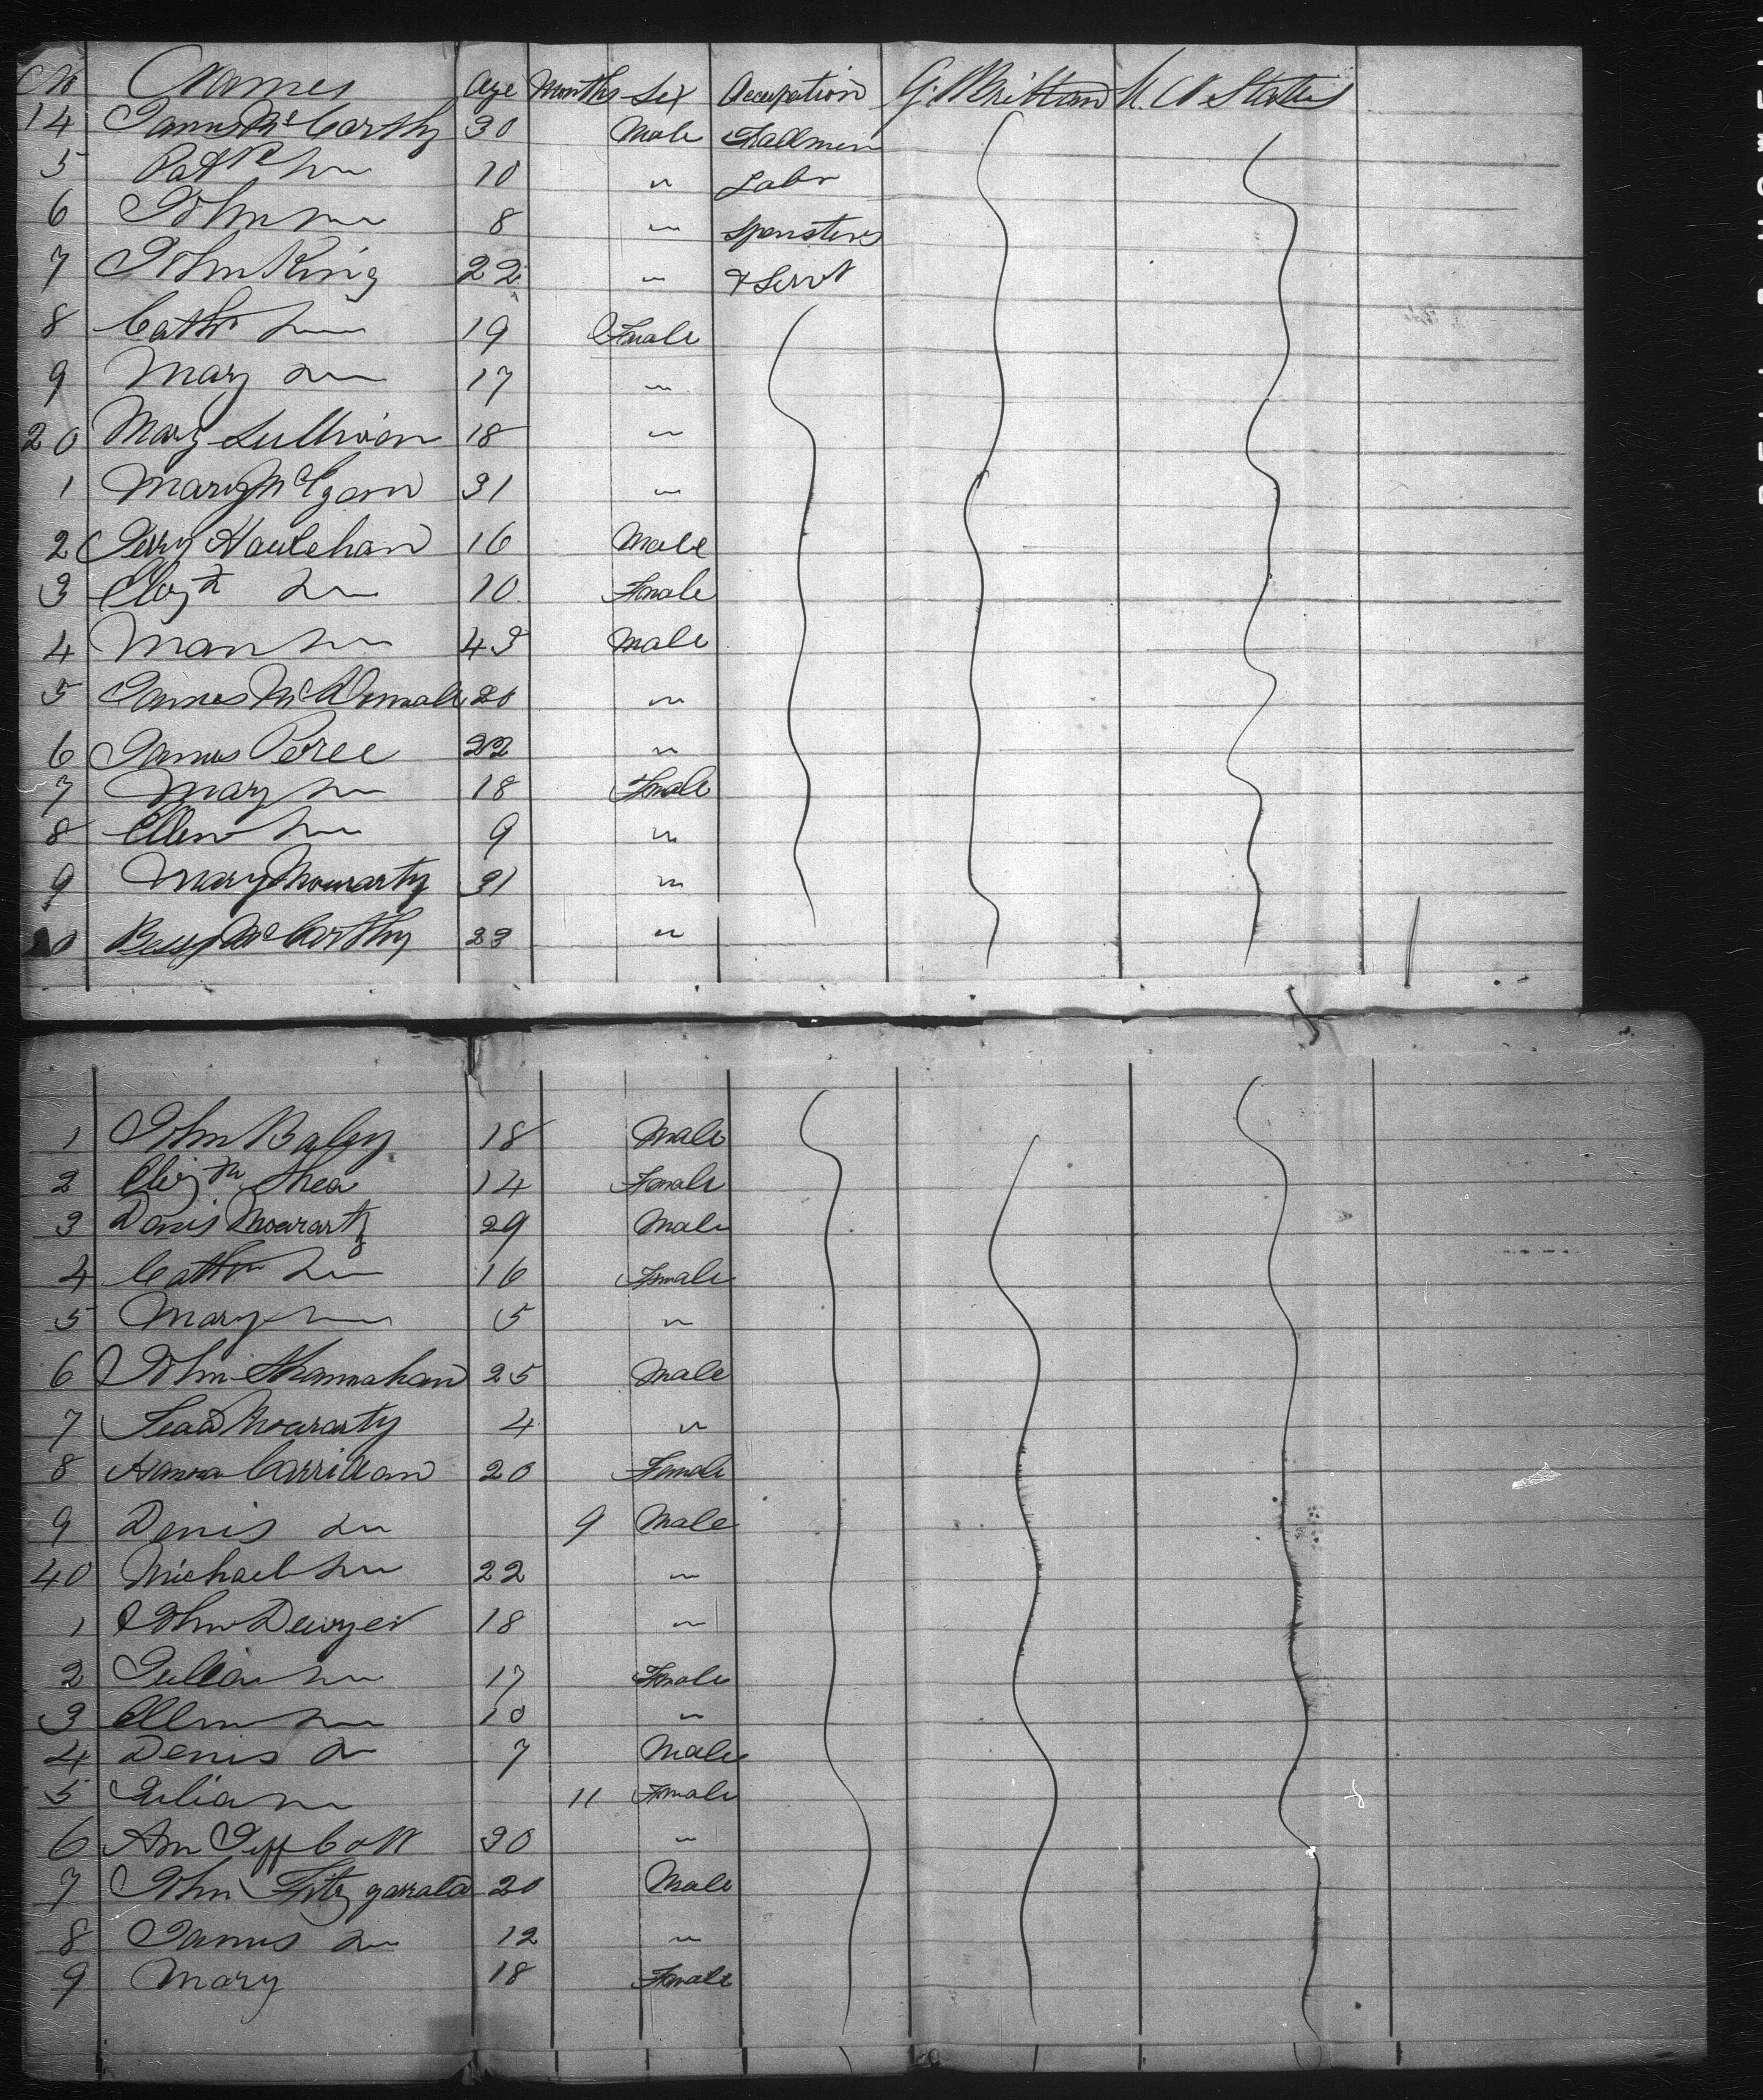 No Names Age Months Sex Occupation G. Brittan U. States
14 James McCarthy 30 Male
5 Patk Do 10 " Labr
6 John Do 8 " Spinsters
7 John King 22 " & Servt
8 Cathn Do 19 Female
9 Mary Do 17 "
20 Mary Sullivan 18 "
1 Mary 31 "
2 Jerry Houlehan 16 Male
3 Elizth Do 10 Female
4 Do 43 Male
5 James 20 "
6 James Peree 22 "
7 Mary Do 18 Female
8 Ellen Do 9 "
9 Mary Mourarty 31 "
30 Bessy McCarthy 23 "
1 John Baley 18 Male
2 Elizth Shea 14 Female
3 Denis Mourarty 29 Male
4 Cathn Do 16 Female
5 Mary Do 5 "
6 John Shannahan 25 Male
7 Mourarty 4 "
8 Hanna 20 Female
9 Denis Do 9 Male
40 Michael Do 22 "
1 John Dewyer 18 "
2 Julia Do 17 Female
3 Ellen Do 10 "
4 Denis Do 7 Male
5 Julia Do 11 Female
6 Ann 30 "
7 John Fitzgarrald 20 Male
8 James Do 12 "
9 Mary 18 Female